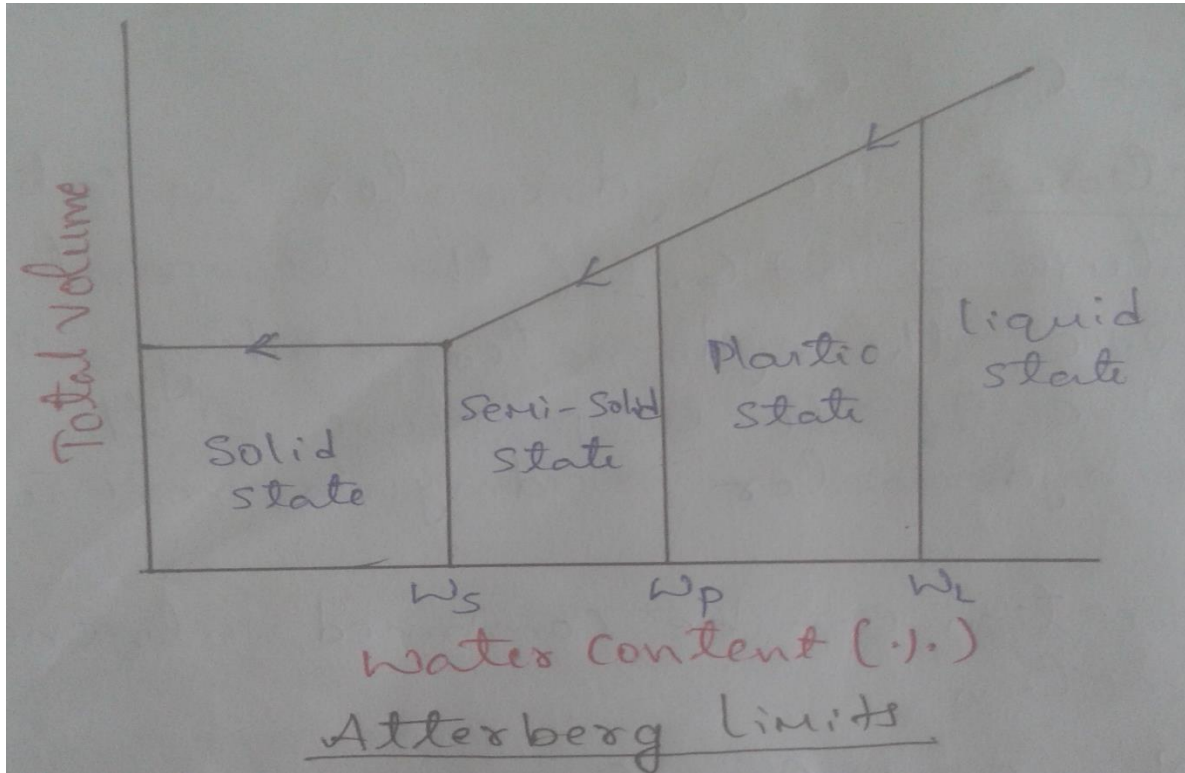 Total volume
Solid
state
Semi-Solid
state
Plastic
state
liquid
state
Ws
Wp
WL
Water content (%)
Atterberg limits